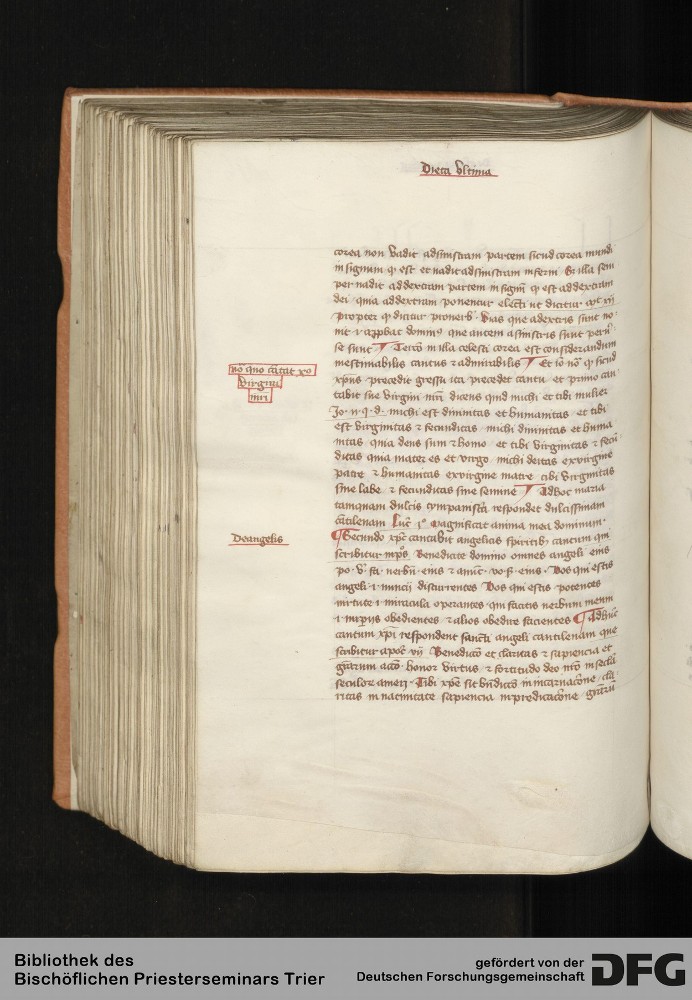 Dieta vltima
corea non vadit ad sinistram partem sicud corea mundi
in signum qͥ est et vadit ad sinistram inferni Et illa sem
per vadit ad dextram partem in signū qͥ est ad dextram
dei quia ad dextram ponentur electi ut dicitur
propter qͥ dicitur prouerbͥ vias que a dextris sunt no
uit dominus que autem a sinistris sunt peruͥ
se sunt Tercō in illa celesti corea est considerandum
inestimabilis cantus et admirabilis Et iō nō qͥ sicud
xpūs precedit gressu ita precedet cantu et primo can
tabit sue virgini mrī dicens quid michi et tibi mulier
Jo · ij · q · d · michi est diuinitas et humanitas et tibi
est virginitas et fecunditas michi diuinitas et huma
nitas quia deus sum et homo et tibi virginitas et fecū
ditas quia mater es et virgo michi deitas ex virgine
patre et humanitas ex virgine matre tibi virginitas
sine labe et fecunditas sine semine Ad hoc maria
tamquam dulcis tympanistra respondet dulcissimam
cātilenam Luc̄ jº Magnificat anima mea dominum
Secundo xpc cantabit angelicis spiritibꝫ cantum qui
scribitur in psͦ Benedicite domino omnes angeli eius
po · vͥ · fa · uerbū · eius
angeli · i · nuncij discurrentes Vos qui estis potentes
uirtute · i · miracula operantes · qui facitis uerbum meum
· i · imperijs obedientes et alios obedire facientes Ad huc
cantum xpī respondent sancti angeli cantilenam que
scribitur apoc̄ vij Benedictō et claritas et sapiencia et
grārum actō · honor virtus et fortitudo deo nrō in secla
seculorꝫ amen · Tibi xpē sit bn̄dictō in incarnacōne · cla
ritas in natiuitate sapiencia in predicacōne · grārū
nō quo cātat xō
virgini
mrī
De angelis
Bibliothek des
Bischöflichen Priesterseminars Trier
gefördert von der
Deutschen Forschungsgemeinschaft
DFG